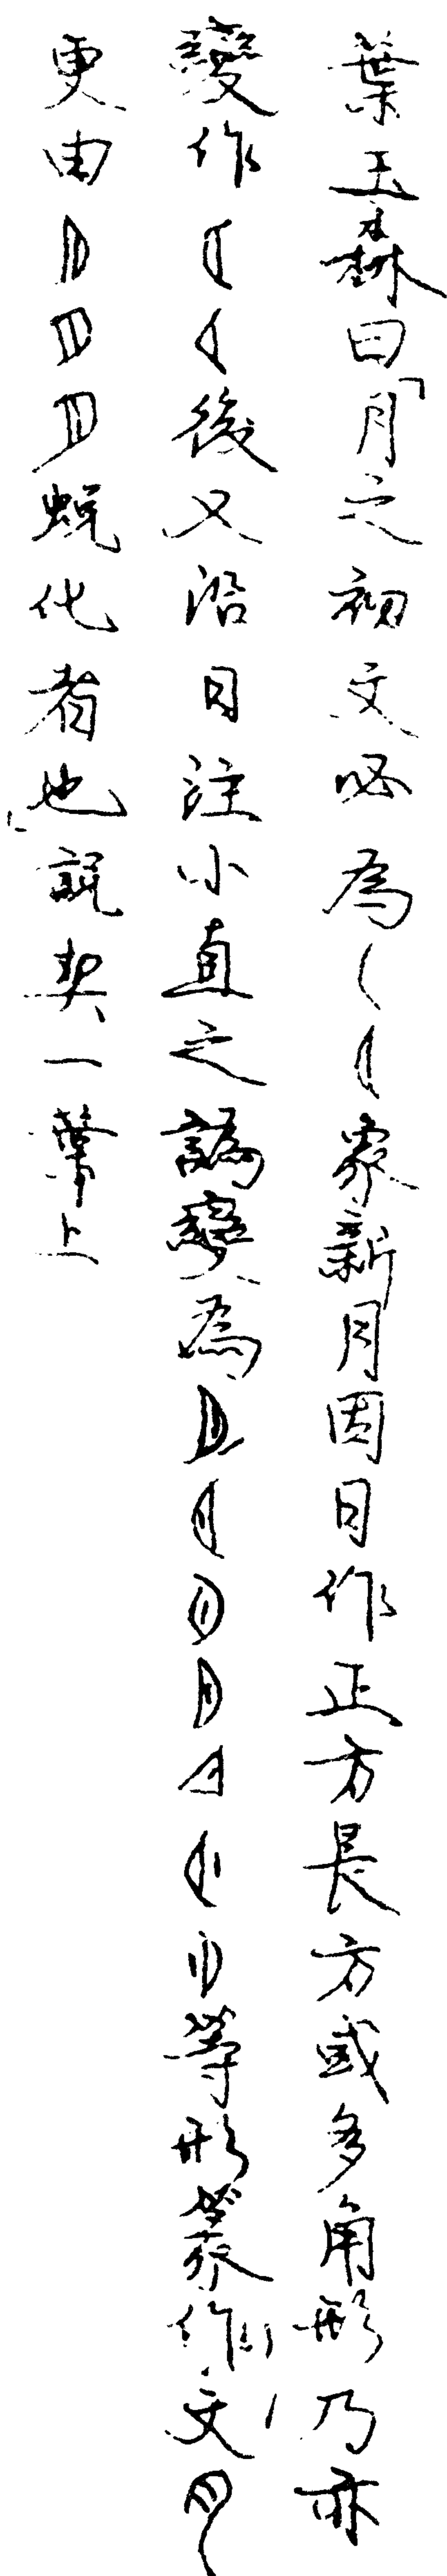 葉玉森曰「月之初文必為象新月因日作正方長方或多角形乃亦
變作後又沿日注小直之譌變為等形篆文作
更由蛻化者也」說契一葉上